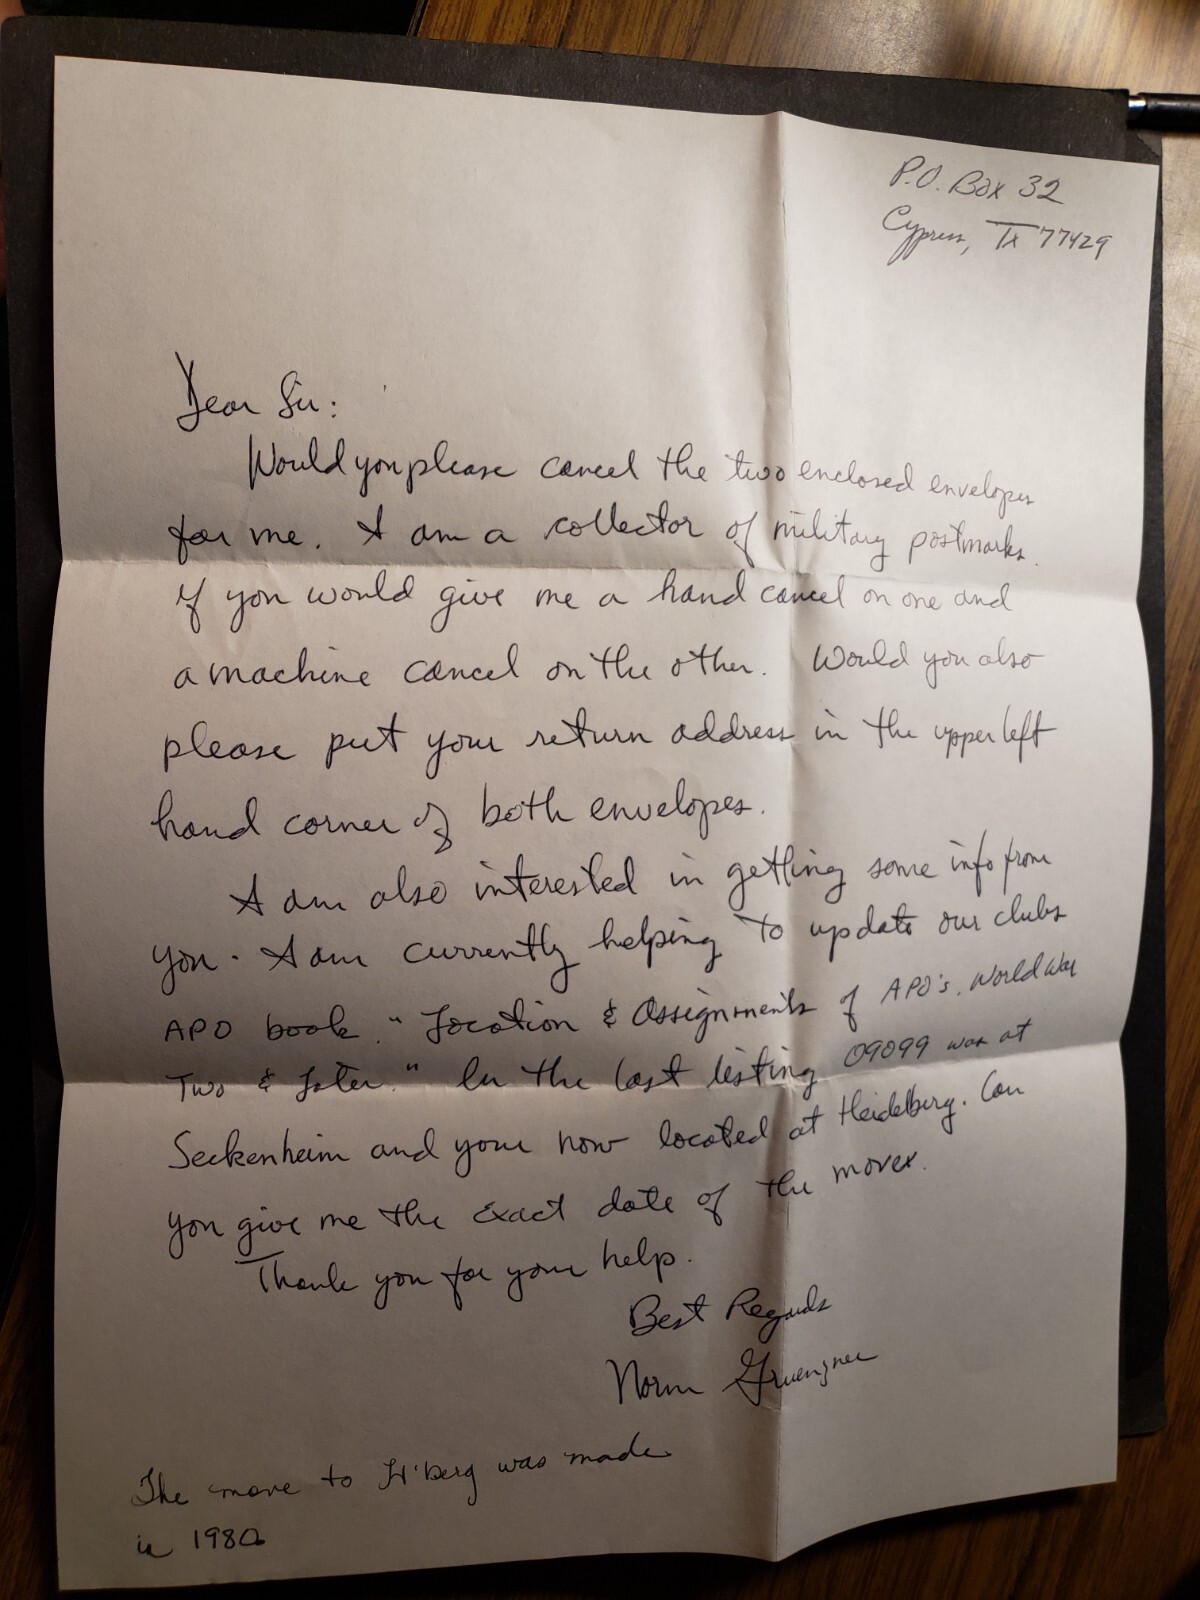 P.O. Box 32
Cypress, Tx 77429
Dear Sir:
Would you please cancel the two enclosed envelopes
for me. I am a collector of military postmarks.
if you would give me a hand cancel on one and
a machine cancel on the other. Would you also
please put your return address in the upper left
hand corner of both envelopes.
I am also interested in getting some info from
you. I am currently helping to update our clubs
APO book "Location & Assignments of APO's, World War
Two & Later." In the last listing 09099 was at
Seckenheim and your now located at Heidelberg. Can
you give me the exact date of the move.
Thank you for your help.
Best Regards
Norm
The move to H'berg was made
in 1980